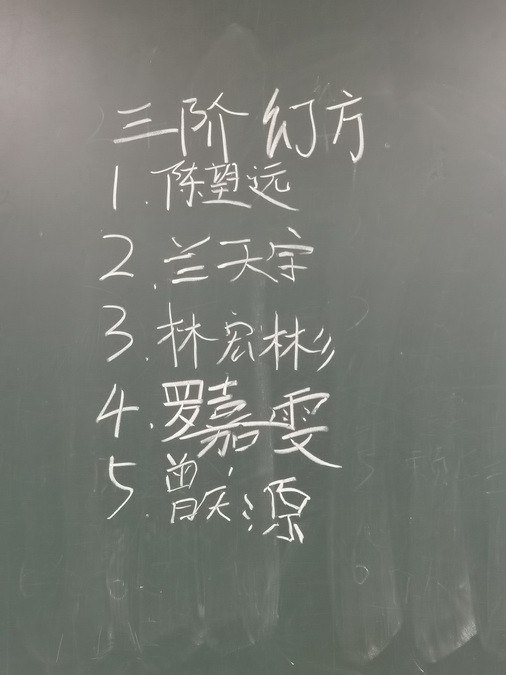 三阶幻方
1.陈望远
2.兰天宇
3.林宏彬
4.罗嘉雯
5.曾天源